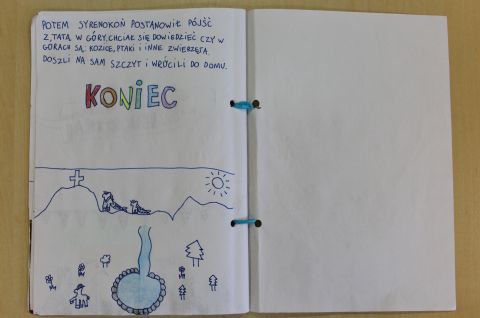 POTEM SYRENOKOŃ POSTANOWIŁ PÓJŚĆ
Z,TATĄ W GÓRY,CHCIAŁ SIĘ DOWIEDZIEĆ CZY W
GÓRACH SĄ: KOZICE, PTAKI I INNE ZWIERZĘTA.
DOSZLI NA SAM SZCZYT I WRÓCILI DO DOMU.
KONIEC